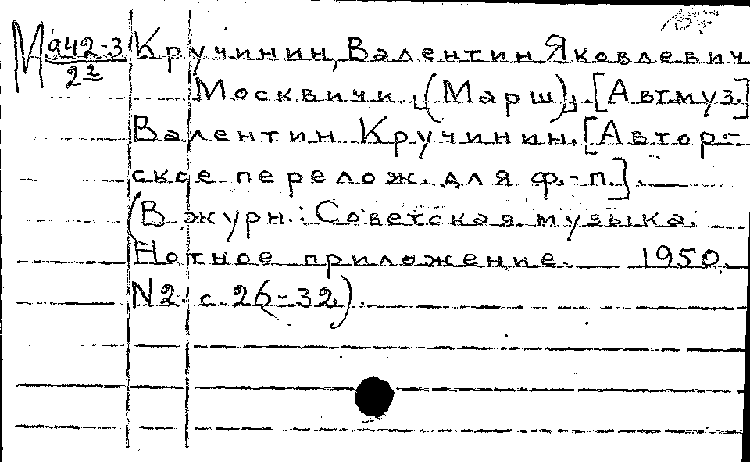 М 942-3/2² Кручинин, Валентин Яковлевич
Москвичи. (Марш). [Авт.муз.]
Валентин Кручинин. [Автор-
ское перелож. для ф.-п.].
(В журн.: Советская музыка.
Нотное приложение. 1950.
N2. с. 26-32).